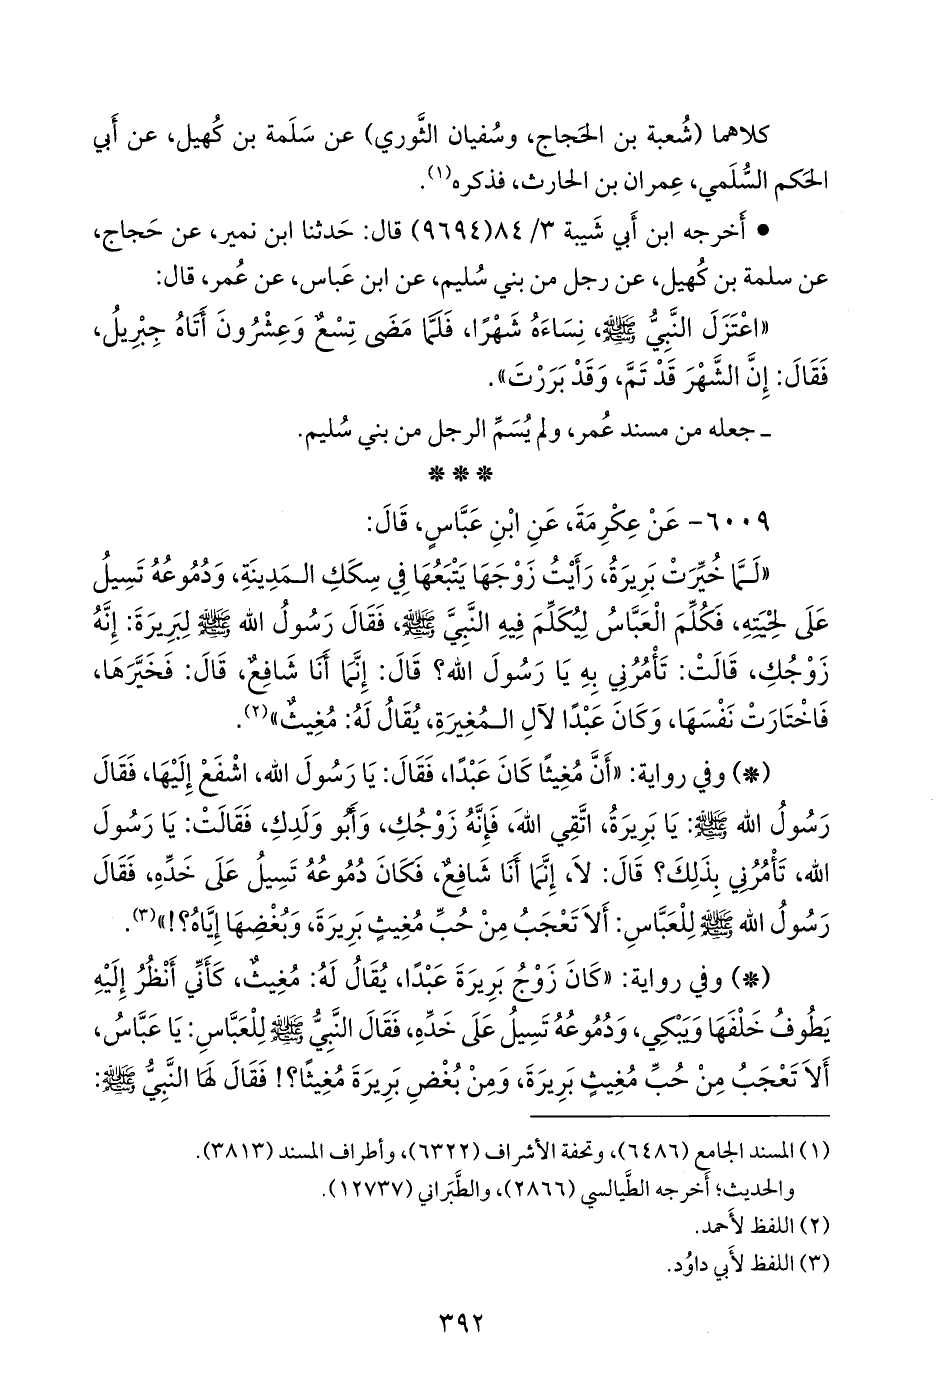 كلاهما (شُعبة بن الحَجاج، وسُفيان الثَّوري) عن سَلَمة بن كُهيل، عن أَبي
الحَكم السُّلَمي، عِمران بن الحارث، فذكره(١).
• أَخرجه ابن أَبي شَيبة ٣/ ٨٤(٩٦٩٤) قال: حَدثنا ابن نمير، عن حَجاج،
عن سلمة بن كُهيل، عن رجل من بني سُليم، عن ابن عَباس، عن عُمر، قال:
«اعْتَزَلَ النَّبِيُّ ﷺ، نِسَاءَهُ شَهْرًا، فَلَمَّا مَضَى تِسْعٌ وَعِشْرُونَ أَتَاهُ جِبْرِيلُ،
فَقَالَ: إِنَّ الشَّهْرَ قَدْ تَمَّ، وَقَدْ بَرَرْتَ».
ـ جعله من مسند عُمر، ولم يُسَمِّ الرجل من بني سُليم.
* * *
٦٠٠٩- عَنْ عِكْرِمَةَ، عَنِ ابْنِ عَبَّاسٍ، قَالَ:
«لَـمَّا خُيِّرَتْ بَرِيرَةُ، رَأَيْتُ زَوْجَهَا يَتْبَعُهَا فِي سِكَكِ الـمَدِينَةِ، وَدُمُوعُهُ تَسِيلُ
عَلَى لِحْيَتِهِ، فَكُلِّمَ الْعَبَّاسُ لِيُكَلِّمَ فِيهِ النَّبِيَّ ﷺ، فَقَالَ رَسُولُ الله ﷺ لِبَرِيرَةَ: إِنَّهُ
زَوْجُكِ، قَالَتْ: تَأْمُرُنِي بِهِ يَا رَسُولَ الله؟ قَالَ: إِنَّمَا أَنَا شَافِعٌ، قَالَ: فَخَيَّرَهَا،
فَاخْتَارَتْ نَفْسَهَا، وَكَانَ عَبْدًا لآلِ الـمُغِيرَةِ، يُقَالُ لَهُ: مُغِيثٌ»(٢).
(*) وفي رواية: «أَنَّ مُغِيثًا كَانَ عَبْدًا، فَقَالَ: يَا رَسُولَ الله، اشْفَعْ إِلَيْهَا، فَقَالَ
رَسُولُ الله ﷺ: يَا بَرِيرَةُ، اتَّقِي اللهَ، فَإِنَّهُ زَوْجُكِ، وَأَبُو وَلَدِكِ، فَقَالَتْ: يَا رَسُولَ
الله، تَأْمُرُنِي بِذَلِكَ؟ قَالَ: لاَ، إِنَّمَا أَنَا شَافِعٌ، فَكَانَ دُمُوعُهُ تَسِيلُ عَلَى خَدِّهِ، فَقَالَ
رَسُولُ الله ﷺ لِلْعَبَّاسِ: أَلاَ تَعْجَبُ مِنْ حُبِّ مُغِيثٍ بَرِيرَةَ، وَبُغْضِهَا إِيَّاهُ؟!»(٣).
(*) وفي رواية: «كَانَ زَوْجُ بَرِيرَةَ عَبْدًا، يُقَالُ لَهُ: مُغِيثٌ، كَأَنِّي أَنْظُرُ إِلَيْهِ
يَطُوفُ خَلْفَهَا وَيَبْكِي، وَدُمُوعُهُ تَسِيلُ عَلَى خَدِّهِ، فَقَالَ النَّبِيُّ ﷺ لِلْعَبَّاسِ: يَا عَبَّاسُ،
أَلاَ تَعْجَبُ مِنْ حُبِّ مُغِيثٍ بَرِيرَةَ، وَمِنْ بُغْضِ بَرِيرَةَ مُغِيثًا؟! فَقَالَ لَهَا النَّبِيُّ ﷺ:
(١) المسند الجامع (٦٤٨٦)، وتحفة الأشراف (٦٣٢٢)، وأطراف المسند (٣٨١٣).
والحديث؛ أخرجه الطَّيالسي (٢٨٦٦)، والطَّبَراني (١٢٧٣٧).
(٢) اللفظ لأَحمد.
(٣) اللفظ لأَبي داوُد.
٣٩٢